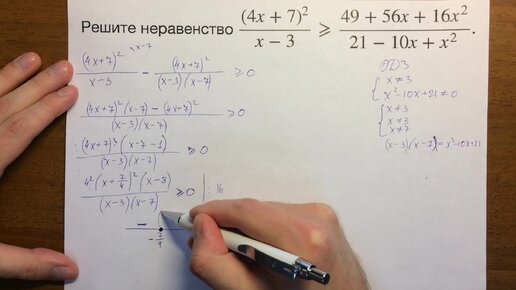 Решите неравенство (4x + 7)² / (x − 3) ⩾ (49 + 56x + 16x²) / (21 − 10x + x²).
(4x+7)² \x-7 / (x-3) − (4x+7)² / ((x-3)(x-7)) ⩾ 0
(4x+7)²(x-7) − (4x+7)² / ((x-3)(x-7)) ⩾ 0
(4x+7)²(x-7-1) / ((x-3)(x-7)) ⩾ 0
4²(x + 7/4)²(x-8) / ((x-3)(x-7)) ⩾ 0 | : 16
−
-7/4
ОДЗ
{ x ≠ 3
x² - 10x + 21 ≠ 0
{ x ≠ 3
x ≠ 3
x ≠ 7
(x-3)(x-7) = x² - 10x + 21